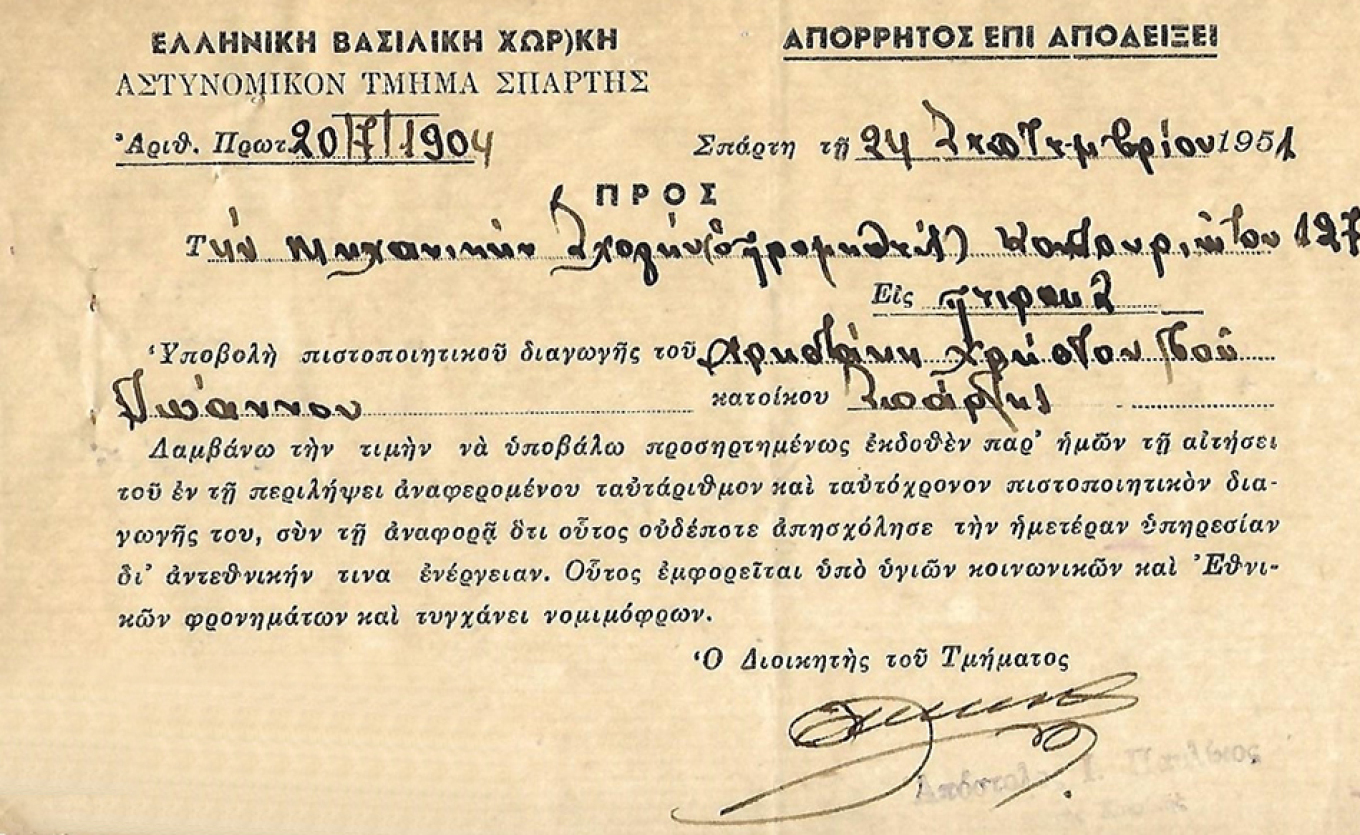 ΕΛΛΗΝΙΚΗ ΒΑΣΙΛΙΚΗ ΧΩΡ)ΚΗ
ΑΣΤΥΝΟΜΙΚΟΝ ΤΜΗΜΑ ΣΠΑΡΤΗΣ
Ἀριθ. Πρωτ. 20/7/1904
ΑΠΟΡΡΗΤΟΣ ΕΠΙ ΑΠΟΔΕΙΞΕΙ
Σπάρτη τῇ 24 Σεπτεμβρίου 1951
ΠΡΟΣ
Τὴν Μηχανικὴν Σχολὴν (ὁ Προμηθεύς) Κουντουριώτου 127
Εἰς Πειραιᾶ
Ὑποβολὴ πιστοποιητικοῦ διαγωγῆς τοῦ Χρῆστον τοῦ
Ἰωάννου κατοίκου Σπάρτης
Λαμβάνω τὴν τιμὴν νὰ ὑποβάλω προσηρτημένως ἐκδοθὲν παρ' ἡμῶν τῇ αἰτήσει
τοῦ ἐν τῇ περιλήψει ἀναφερομένου ταὐτάριθμον καὶ ταὐτόχρονον πιστοποιητικὸν δια-
γωγῆς του, σὺν τῇ ἀναφορᾷ ὅτι οὗτος οὐδέποτε ἀπησχόλησε τὴν ἡμετέραν ὑπηρεσίαν
δι' ἀντεθνικήν τινα ἐνέργειαν. Οὗτος ἐμφορεῖται ὑπὸ ὑγιῶν κοινωνικῶν καὶ Ἐθνι-
κῶν φρονημάτων καὶ τυγχάνει νομιμόφρων.
Ὁ Διοικητὴς τοῦ Τμήματος